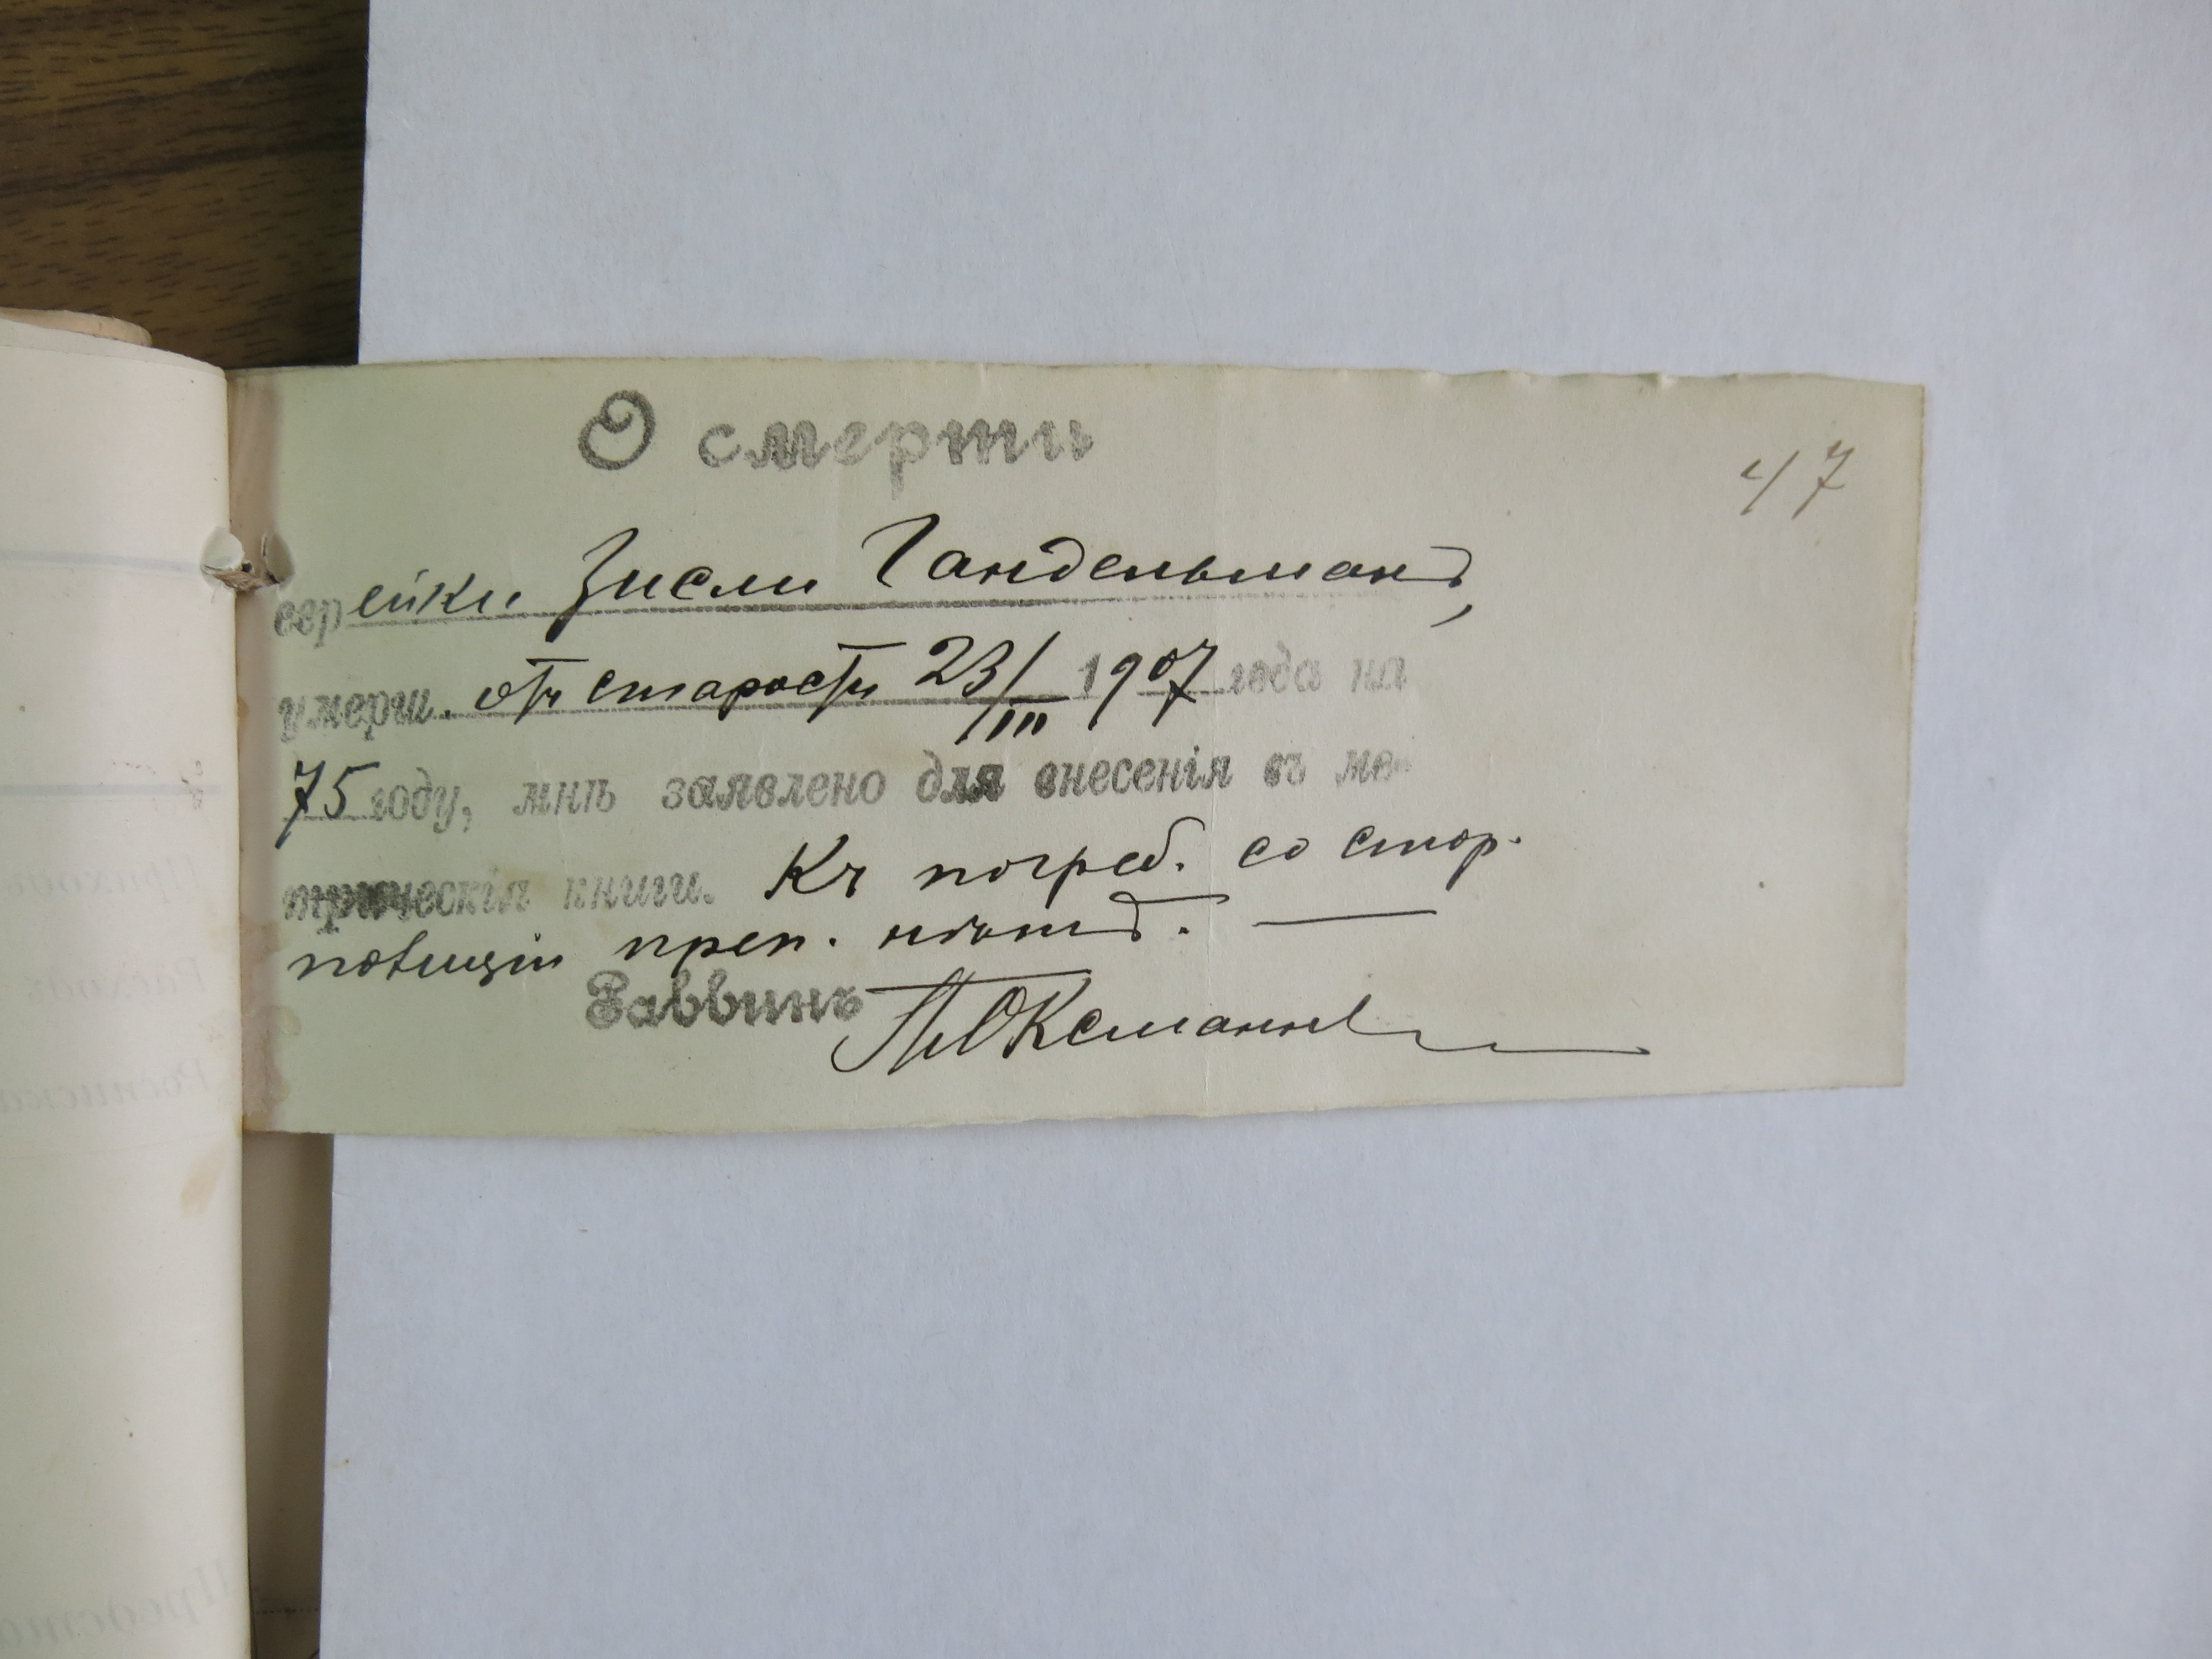 О смерти
47
еврейки Зисли Гандельманъ,
умерш. отъ старости 23/III 1907 года на
75 году, мнѣ заявлено для внесенія въ ме-
трическія книги. Къ погреб. со стор.
полиціи преп. нѣтъ.
Раввинъ Оксманъ